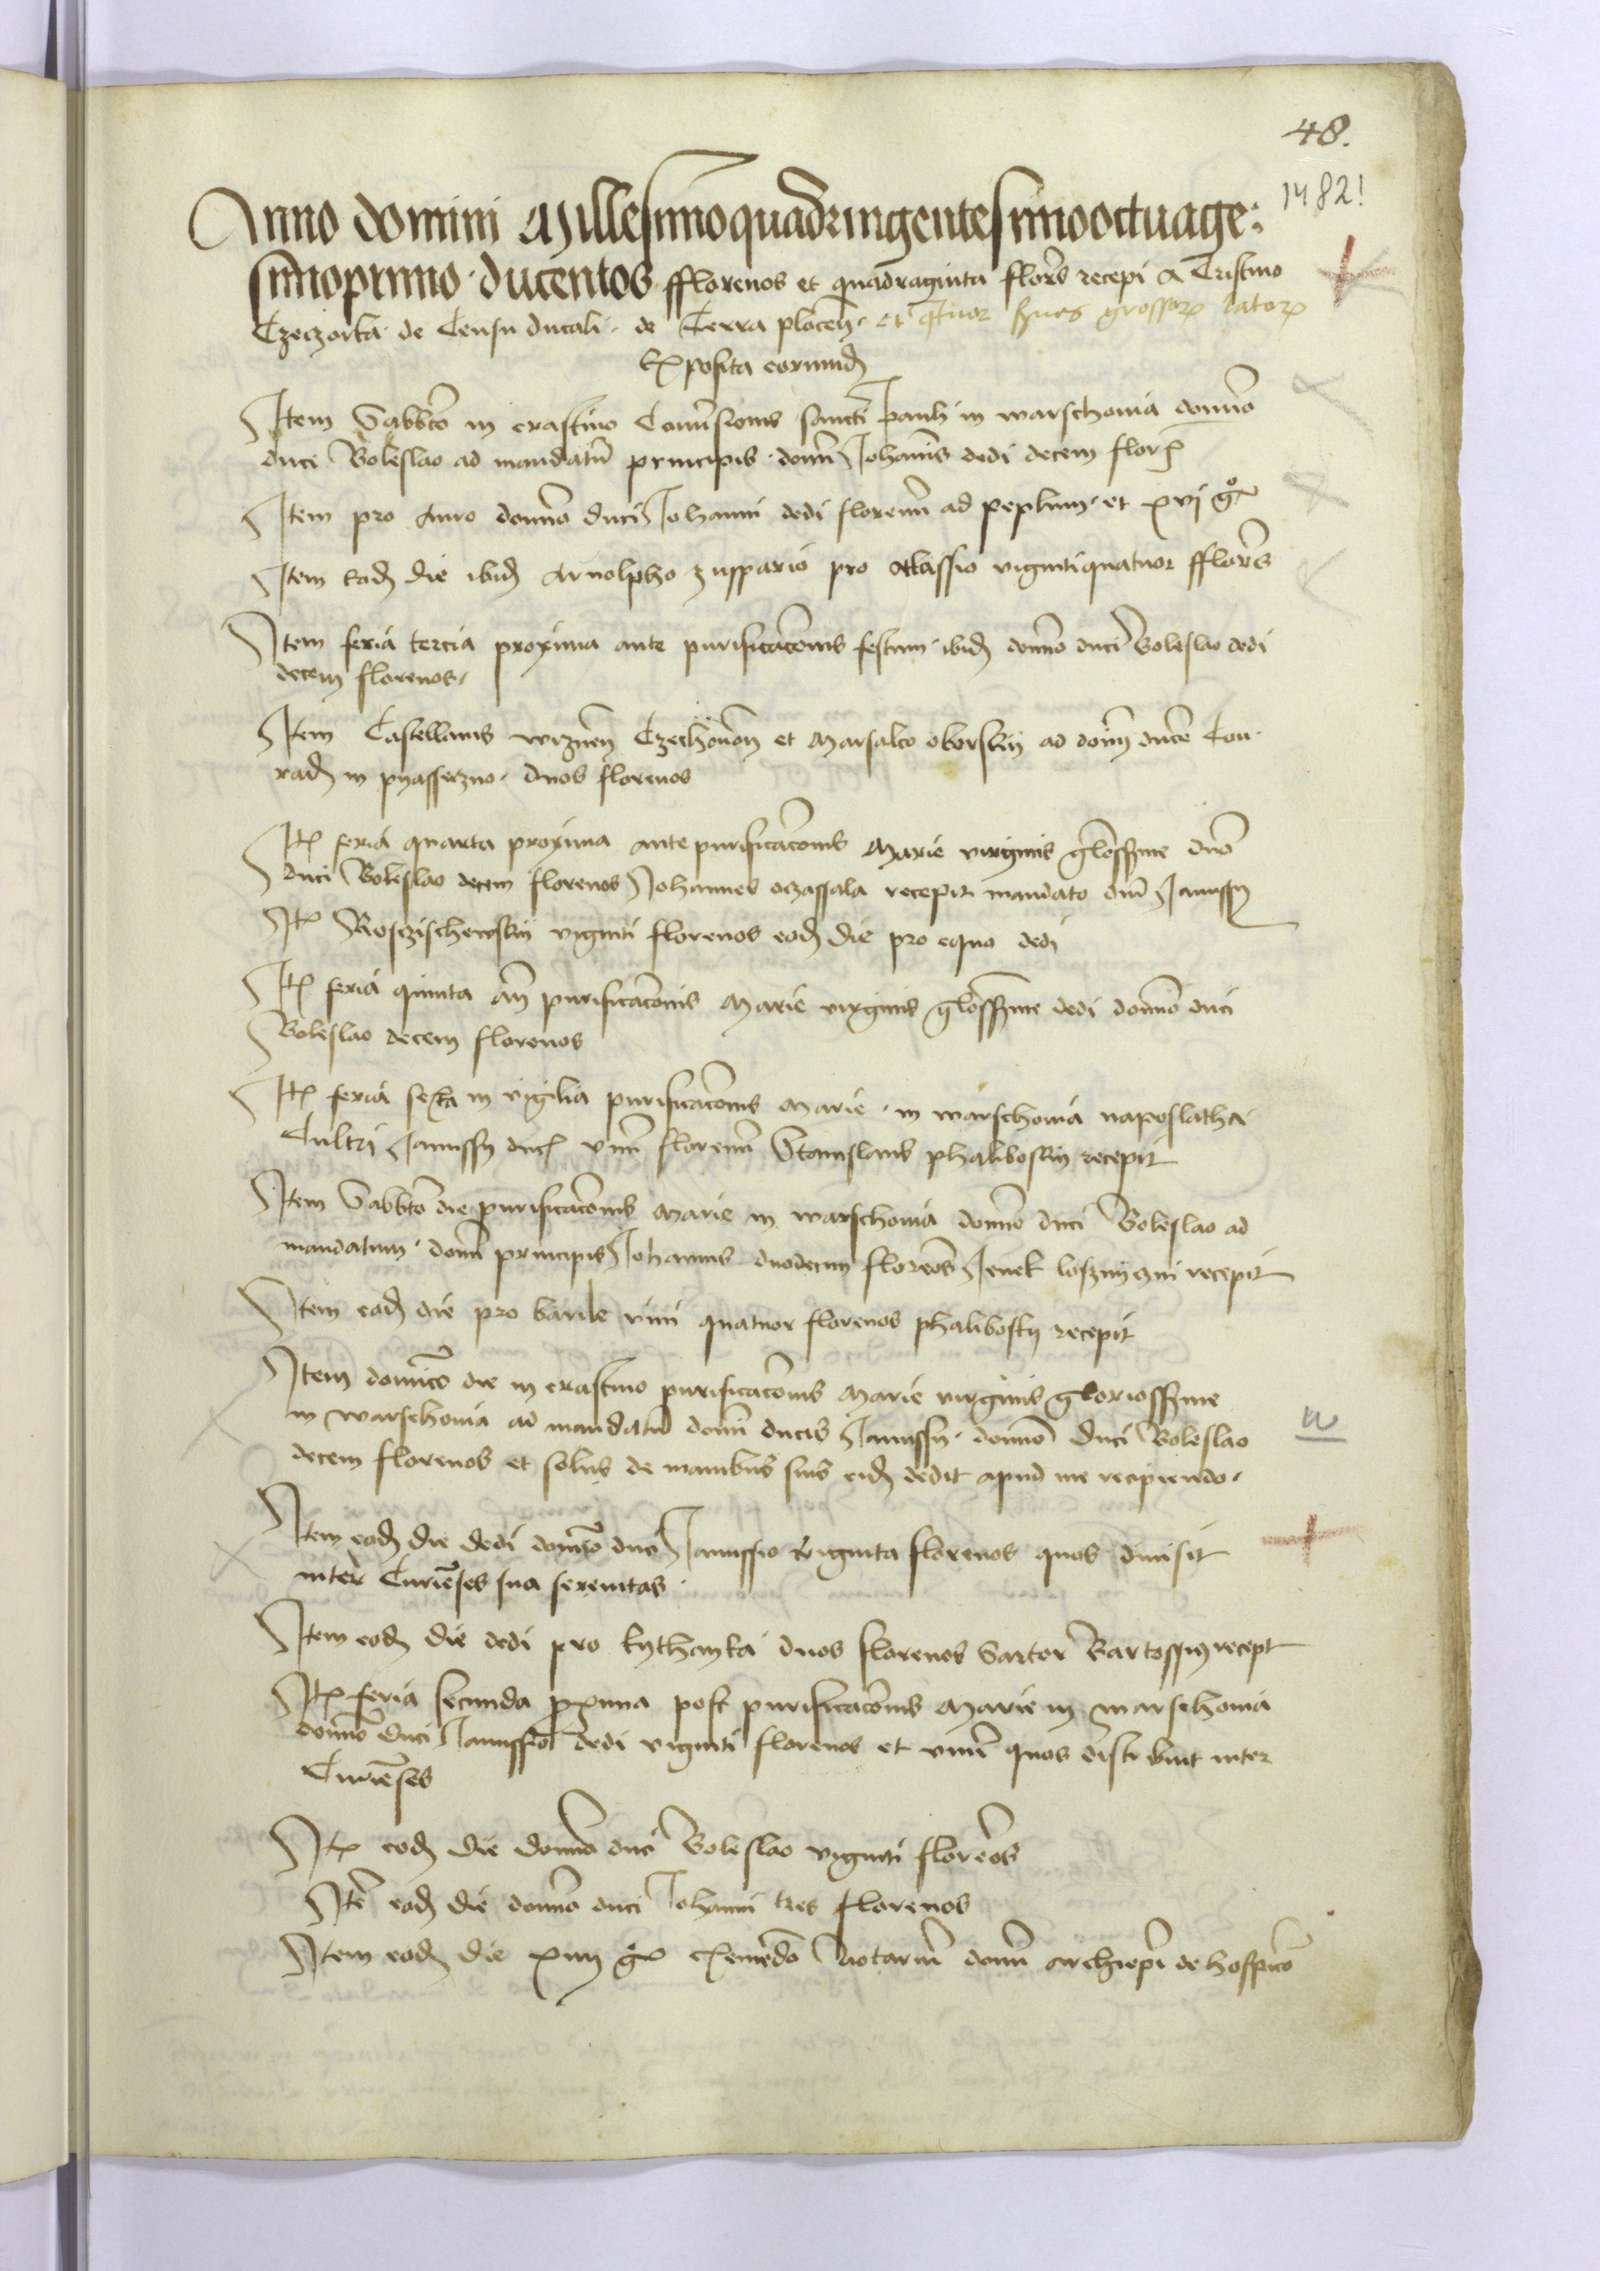 48.
1482!
Anno domini Millesimoquadringentesimooctuage:
simoprimo ducentos fflorenos et quadraginta flores recepi a Cristino
Czeczorka de Censu ducali de Terra plocen et qtuor grossor lator
Exposita eorund
Item Sabbto in crastino Conversionis sancti Pauli in warschovia domino
duci Boleslao ad mandatum principis domini Johannis dedi decem flor
Item pro Auro domino duci Johanni dedi florenum ad peplum et xvj gr
Item eadem die ibid Arnolpho zuppario pro vigintiquatuor fflores
Item feria tercia proxima ante purificacionis festum ibid domino duci Boleslao dedi
decem florenos
Item Castellanis wiznen Czechonen et Marsalco oborskij ad domin ducem Con
rad in pyasseczno duos florenos
Item feria quarta proxima ante purificacionis Marie virginis glossime dno
duci Boleslao decem florenos Johannes oczassala recepit mandato dni Janussij
Item Rosczischewskij viginti florenos eod die pro equo dedi
Item feria quinta an purificacionis Marie virginis glossime dedi domino duci
Boleslao decem florenos
Item feria sexta in vigilia purificacionis Marie in warschovia naposlatha
Cultri Janussy duc unum florenum Stanislaus phaliboskij recepit
Item Sabbto die purificacionis Marie in warschovia domino duci Boleslao ad
mandatum domini principis Johannis duodecim florenos Jenek recepit
Item eod die pro barile vini quatuor florenos phalibosky recepit
Item dominico die in crastino purificacionis Marie virginis gloriossime
in warschovia ad mandatum domini ducis Janussy domino duci Boleslao
decem florenos et solus de manibus suis eid dedit apud me recipiendo
Item eod die dedi domino duci Janussio triginta florenos quos divisit
inter Curienses sua serenitas
Item eod die dedi pro kythayka duos florenos Sartor Bartossius recepit
Item feria secunda proxima post purificacionis Marie in warschovia
domino duci Janussio dedi viginti florenos et unum quos distribuit inter
Curienses
Item eod die domino duci Boleslao viginti florenos
Item eod die domino duci Johanni tres florenos
Item eod die gr eximendo Notarium domini archiepi de hospicio